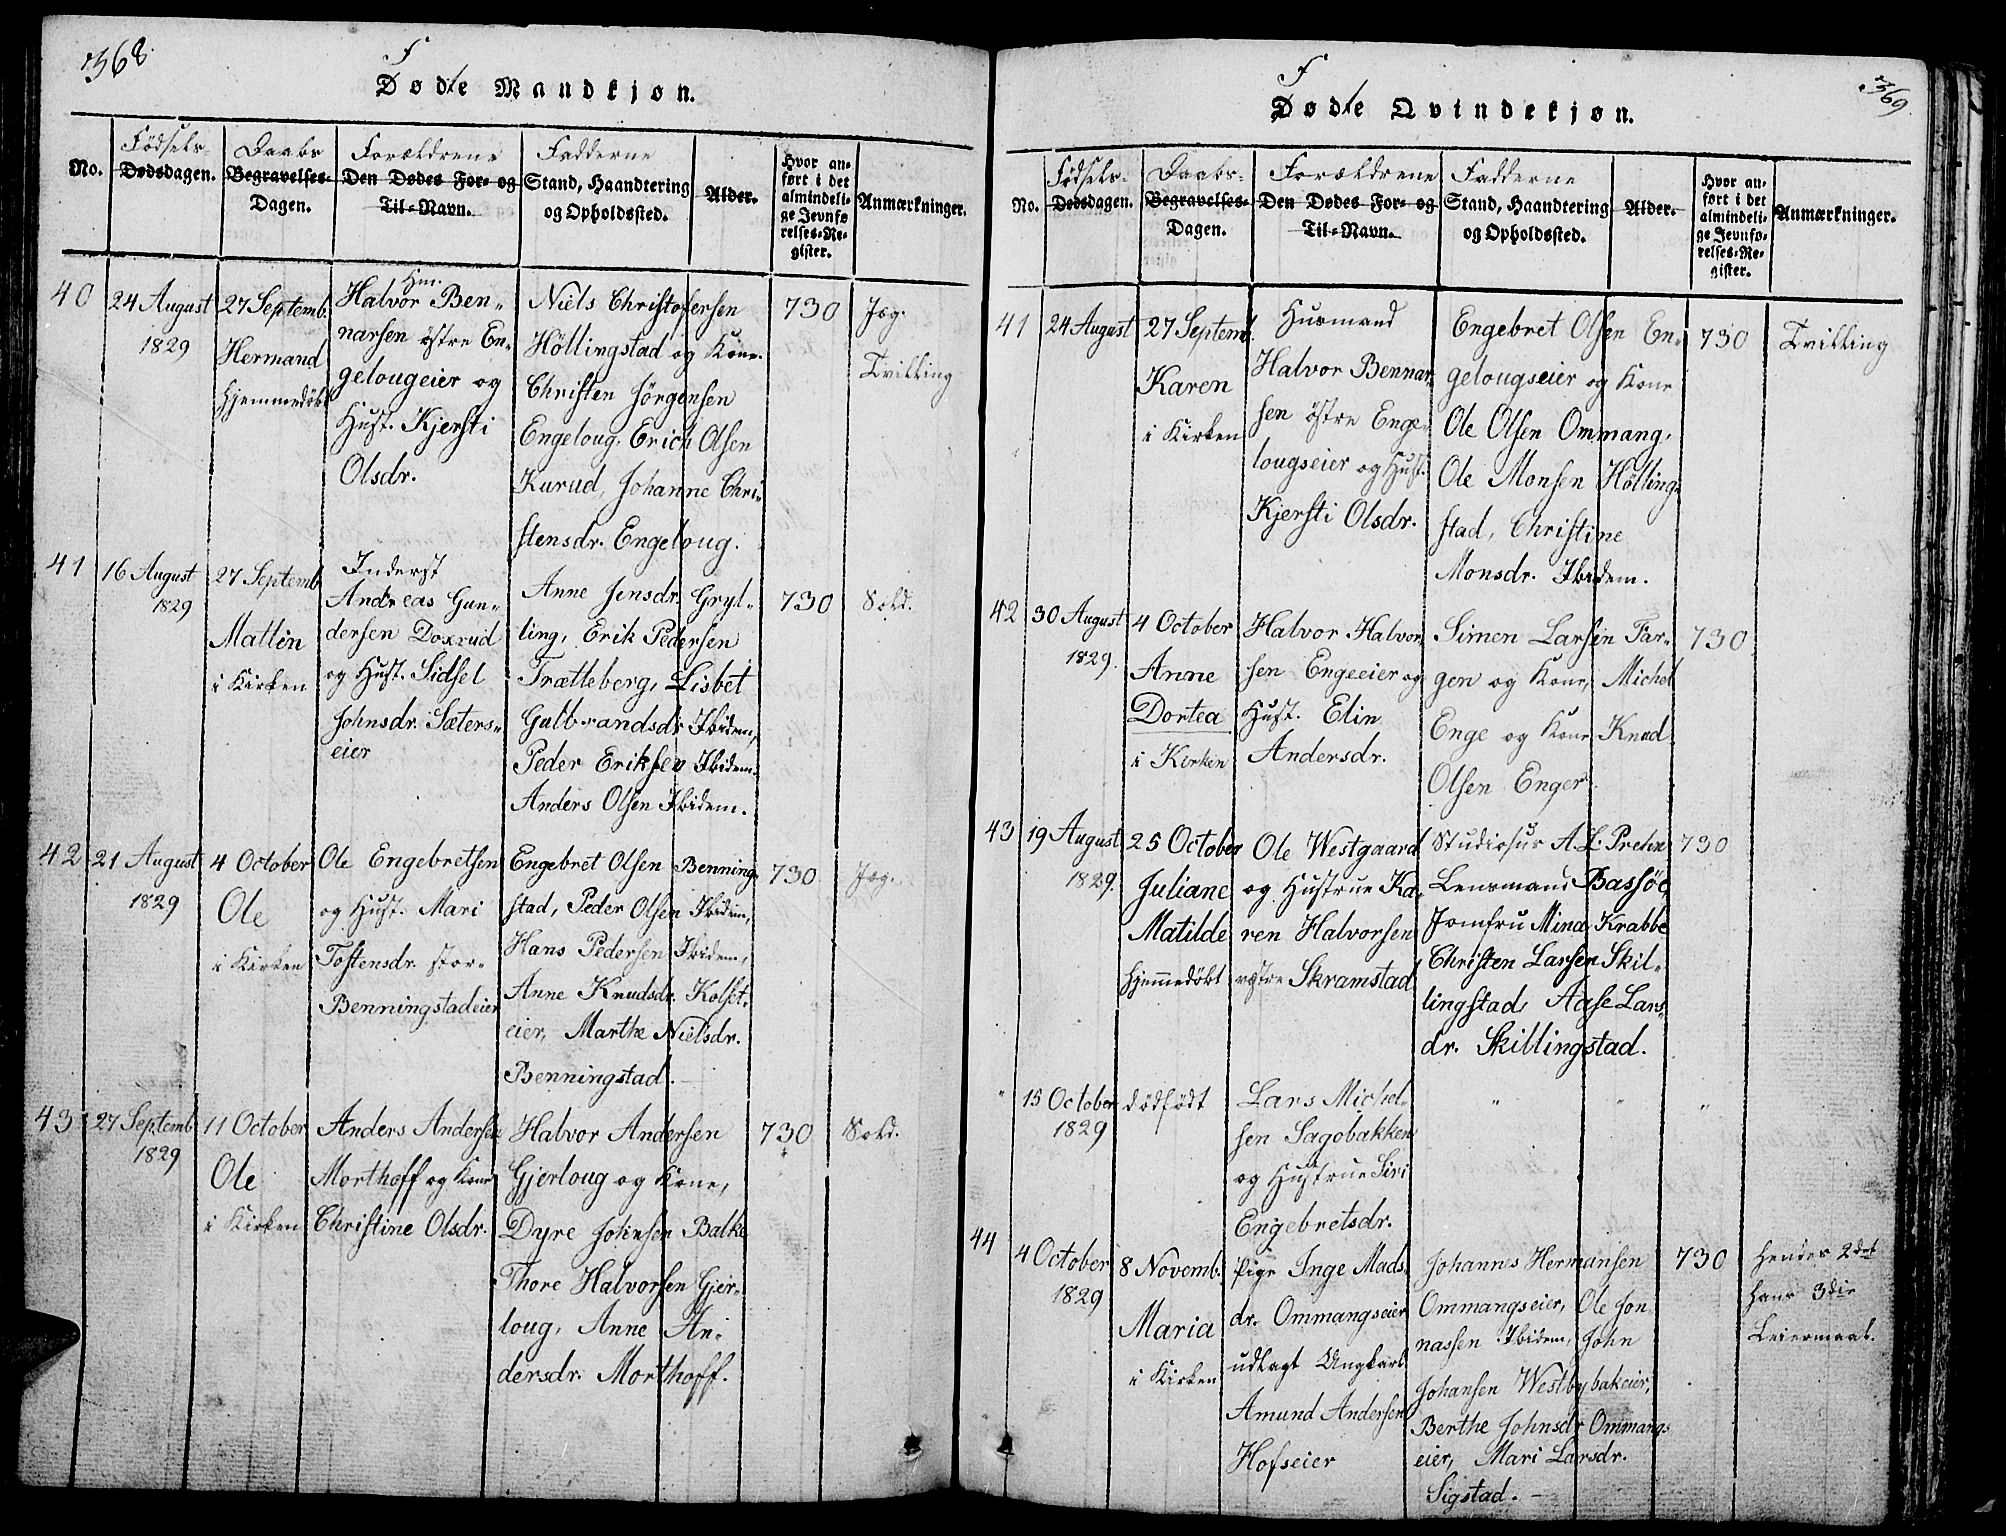 368
Fødte Mandkjøn.
No.
Fødsels-
Dødsdagen.
Daabs
Begravelses-
Dagen.
Forældrene
Den Dødes For- og
Til-Navn.
Fadderne
Stand, Haandtering
og Opholdssted.
Alder.
Hvor an-
ført i det
almindeli-
ge Jevnfø
relses-Re-
gister.
Anmærkninger.
40
24 August
1829
27 Septemb.
Hermand
hjemmedöbt
Hm.
Halvor Ben-
narsen östre En-
gelougeier og
Hust. Kjersti
Olsdr.
Niels Christofersen
Höllingstad og Kone.
Christen Jörgensen
Engeloug, Erich Olsen
Kurud, Johanne Chri-
stensdr. Engeloug.
730
Jæg.
Tvilling
41
16 August
1829
27 Septemb
Mattin
i Kirken
Inderst
Andreas Gun-
dersen Doxrud
og Hust. Sidsel
Johnsdr. Sæters-
eier
Anne Jensdr. Gryl-
ling, Erik Pedersen
Trætteberg, Lisbet
Gulbrandsdr Ibidem,
Peder Eriksen Ibidem.
Anders Olsen Ibidem.
730
Sold.
42
21 August
1829
4 October
Ole
i Kirken
Ole Engebretsen
og Hust. Mari
Tostensdr. stor-
Benningstadeier
Engebret Olsen Benning-
stad, Peder Olsen Ibidem,
Hans Pedersen Ibidem,
Anne Knudsdr. Kolset-
eier, Marthe Nielsdr.
Benningstad.
730
Jæg.
43
27 Septemb
1829
11 October
Ole
i Kirken
Anders Andersen
Morthoff og Kone
Christine Olsdr.
Halvor Andersen
Gjerloug og Kone,
Dyre Johnsen Balke
Thore Halvorsen Gjer-
loug, Anne An-
dersdr. Morthoff.
730
Sold.
369
Fødte Qvindekjøn.
No.
Fødsels-
Dødsdagen.
Daabs-
Begravelses-
Dagen.
Forældrene
Den Dødes For- og
Til-Navn.
Fadderne
Stand, Haandtering
og Opholdssted.
Alder.
Hvor an-
ført i det
almindeli-
ge Jevnfø-
relses-Re-
gister.
Anmærkninger.
41
24 August
27 Septemb.
Karen
i Kirken
Husmand
Halvor Bennar-
sen östre Enge-
lougseier og Hust.
Kjersti Olsdr.
Engebret Olsen En-
gelougseier og Kone
Ole Olsen Ommang,
Ole Monsen Hölling-
stad, Christine
Monsdr. Ibidem.
730
Tvilling
42
30 August
1829.
4 October
Anne
Dortea
i Kirken
Halvor Halvor-
sen Engeeier og
Hust. Elin
Andersdr.
Simen Larsen Far-
gen og Kone, Michel
Enge og Kone Knud
Olsen Enger.
730
43
19 August
1829.
25 October
Juliane
Matilde
hjemmedöbt
Ole Westgaard
og Hustrue Ka-
ren Halvorsen
vestre Skramstad
Studiosus A. L. Prehn
Lensmand Bassöe,
Jomfru Mina Krabbe
Christen Larsen Skil-
lingstad, Aase Lars-
dr. Skillingstad.
730
"
15 October
1829
dödfödt
Lars Michel-
sen Sagobakken
og Hustrue Siri
Engebretsdr.
"
"
"
44
4 October
1829
8 Novemb.
Maria
i Kirken
Pige Inge Mads-
dr. Ommangseier
udlagt Ungkarl
Amund Andersen
Hofseier
Johannes Hermansen
Ommangseier, Ole Jon
nassen Ibidem, John
Johansen Westbybakeier,
Berthe Johnsdr Ommangs
eier, Mari Larsdr.
Sigstad.
730
Hendes 2det
Hans 3die
Leiermaal.